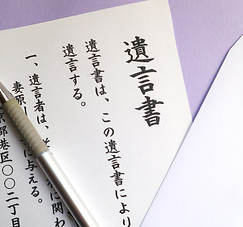 遺言書
遺言書は、この遺言書により
遺言する。
一、遺言者は、
に関わ
妻原
に与える。
京都港区〇〇二丁目